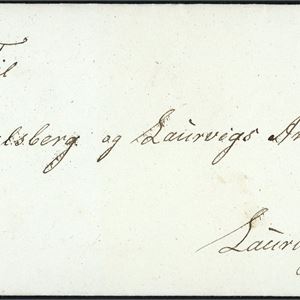 Til
lsberg og Laurvigs Am
Laur